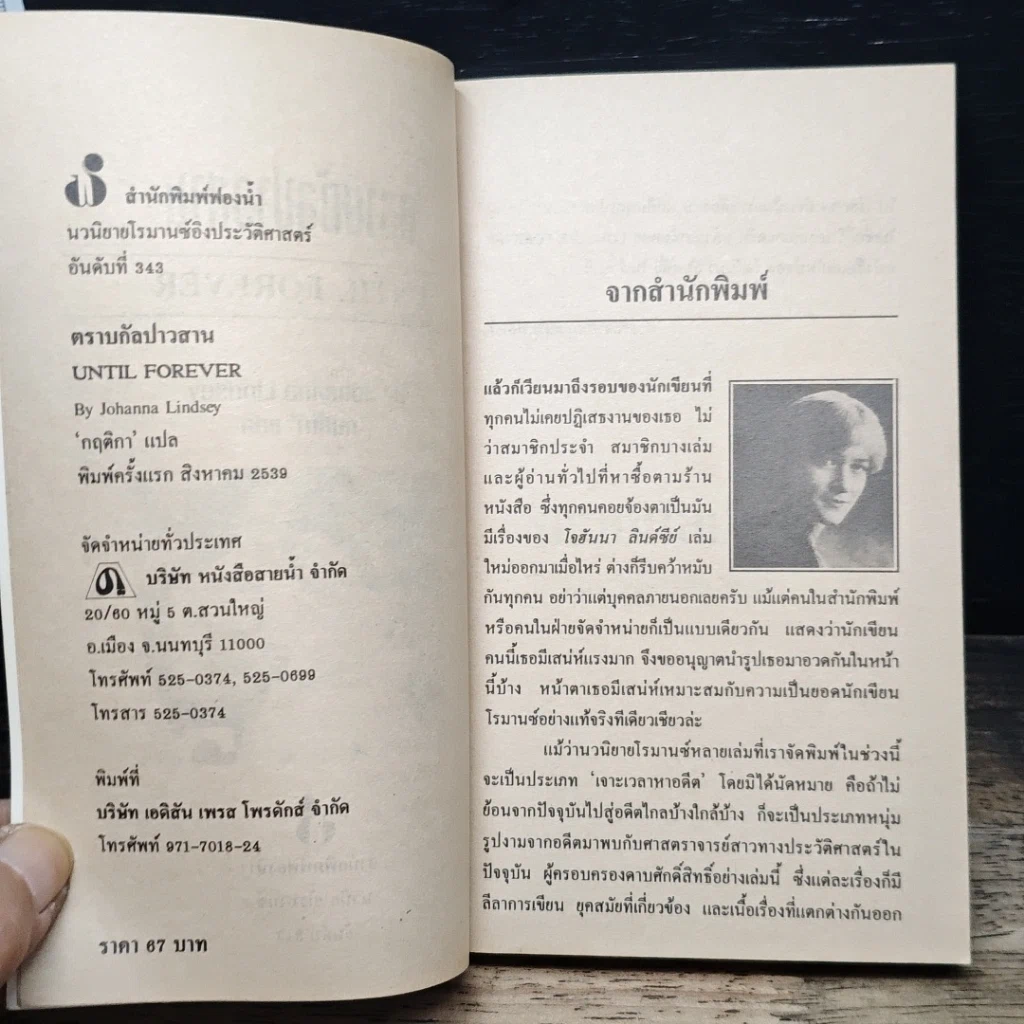 สำนักพิมพ์ฟองน้ำ
นวนิยายโรมานซ์อิงประวัติศาสตร์
อันดับที่ 343
ตราบกัลปาวสาน
UNTIL FOREVER
By Johanna Lindsey
'กฤติกา' แปล
พิมพ์ครั้งแรก สิงหาคม 2539
จัดจำหน่ายทั่วประเทศ
บริษัท หนังสือสายน้ำ จำกัด
20/60 หมู่ 5 ต.สวนใหญ่
อ.เมือง จ.นนทบุรี 11000
โทรศัพท์ 525-0374, 525-0699
โทรสาร 525-0374
พิมพ์ที่
บริษัท เอดิสัน เพรส โพรดักส์ จำกัด
โทรศัพท์ 971-7018-24
ราคา 67 บาท
จากสำนักพิมพ์
แล้วก็เวียนมาถึงรอบของนักเขียนที่
ทุกคนไม่เคยปฏิเสธงานของเธอ ไม่
ว่าสมาชิกประจำ สมาชิกบางเล่ม
และผู้อ่านทั่วไปที่หาซื้อตามร้าน
หนังสือ ซึ่งทุกคนคอยจ้องตาเป็นมัน
มีเรื่องของ โจฮันนา ลินด์ซีย์ เล่ม
ใหม่ออกมาเมื่อไหร่ ต่างก็รีบคว้าหมับ
กันทุกคน อย่าว่าแต่บุคคลภายนอกเลยครับ แม้แต่คนในสำนักพิมพ์
หรือคนในฝ่ายจัดจำหน่ายก็เป็นแบบเดียวกัน แสดงว่านักเขียน
คนนี้เธอมีเสน่ห์แรงมาก จึงขออนุญาตนำรูปเธอมาอวดกันในหน้า
นี้บ้าง หน้าตาเธอมีเสน่ห์เหมาะสมกับความเป็นยอดนักเขียน
โรมานซ์อย่างแท้จริงทีเดียวเชียวล่ะ
แม้ว่านวนิยายโรมานซ์หลายเล่มที่เราจัดพิมพ์ในช่วงนี้
จะเป็นประเภท 'เจาะเวลาหาอดีต' โดยมิได้นัดหมาย คือถ้าไม่
ย้อนจากปัจจุบันไปสู่อดีตไกลบ้างใกล้บ้าง ก็จะเป็นประเภทหนุ่ม
รูปงามจากอดีตมาพบกับศาสตราจารย์สาวทางประวัติศาสตร์ใน
ปัจจุบัน ผู้ครอบครองดาบศักดิ์สิทธิ์อย่างเล่มนี้ ซึ่งแต่ละเรื่องก็มี
ลีลาการเขียน ยุคสมัยที่เกี่ยวข้อง และเนื้อเรื่องที่แตกต่างกันออก